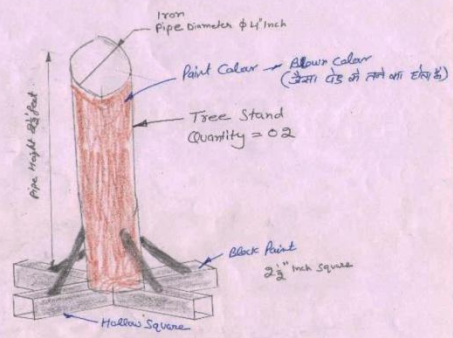 Iron
Pipe Diameter ϕ 4" Inch
Paint Color → Blown Color
(जैसा पेड़ के तने का होता है)
Tree Stand
Quantity = 02
Pipe Height feet
Black Paint
2½" Inch Square
Hollow Square